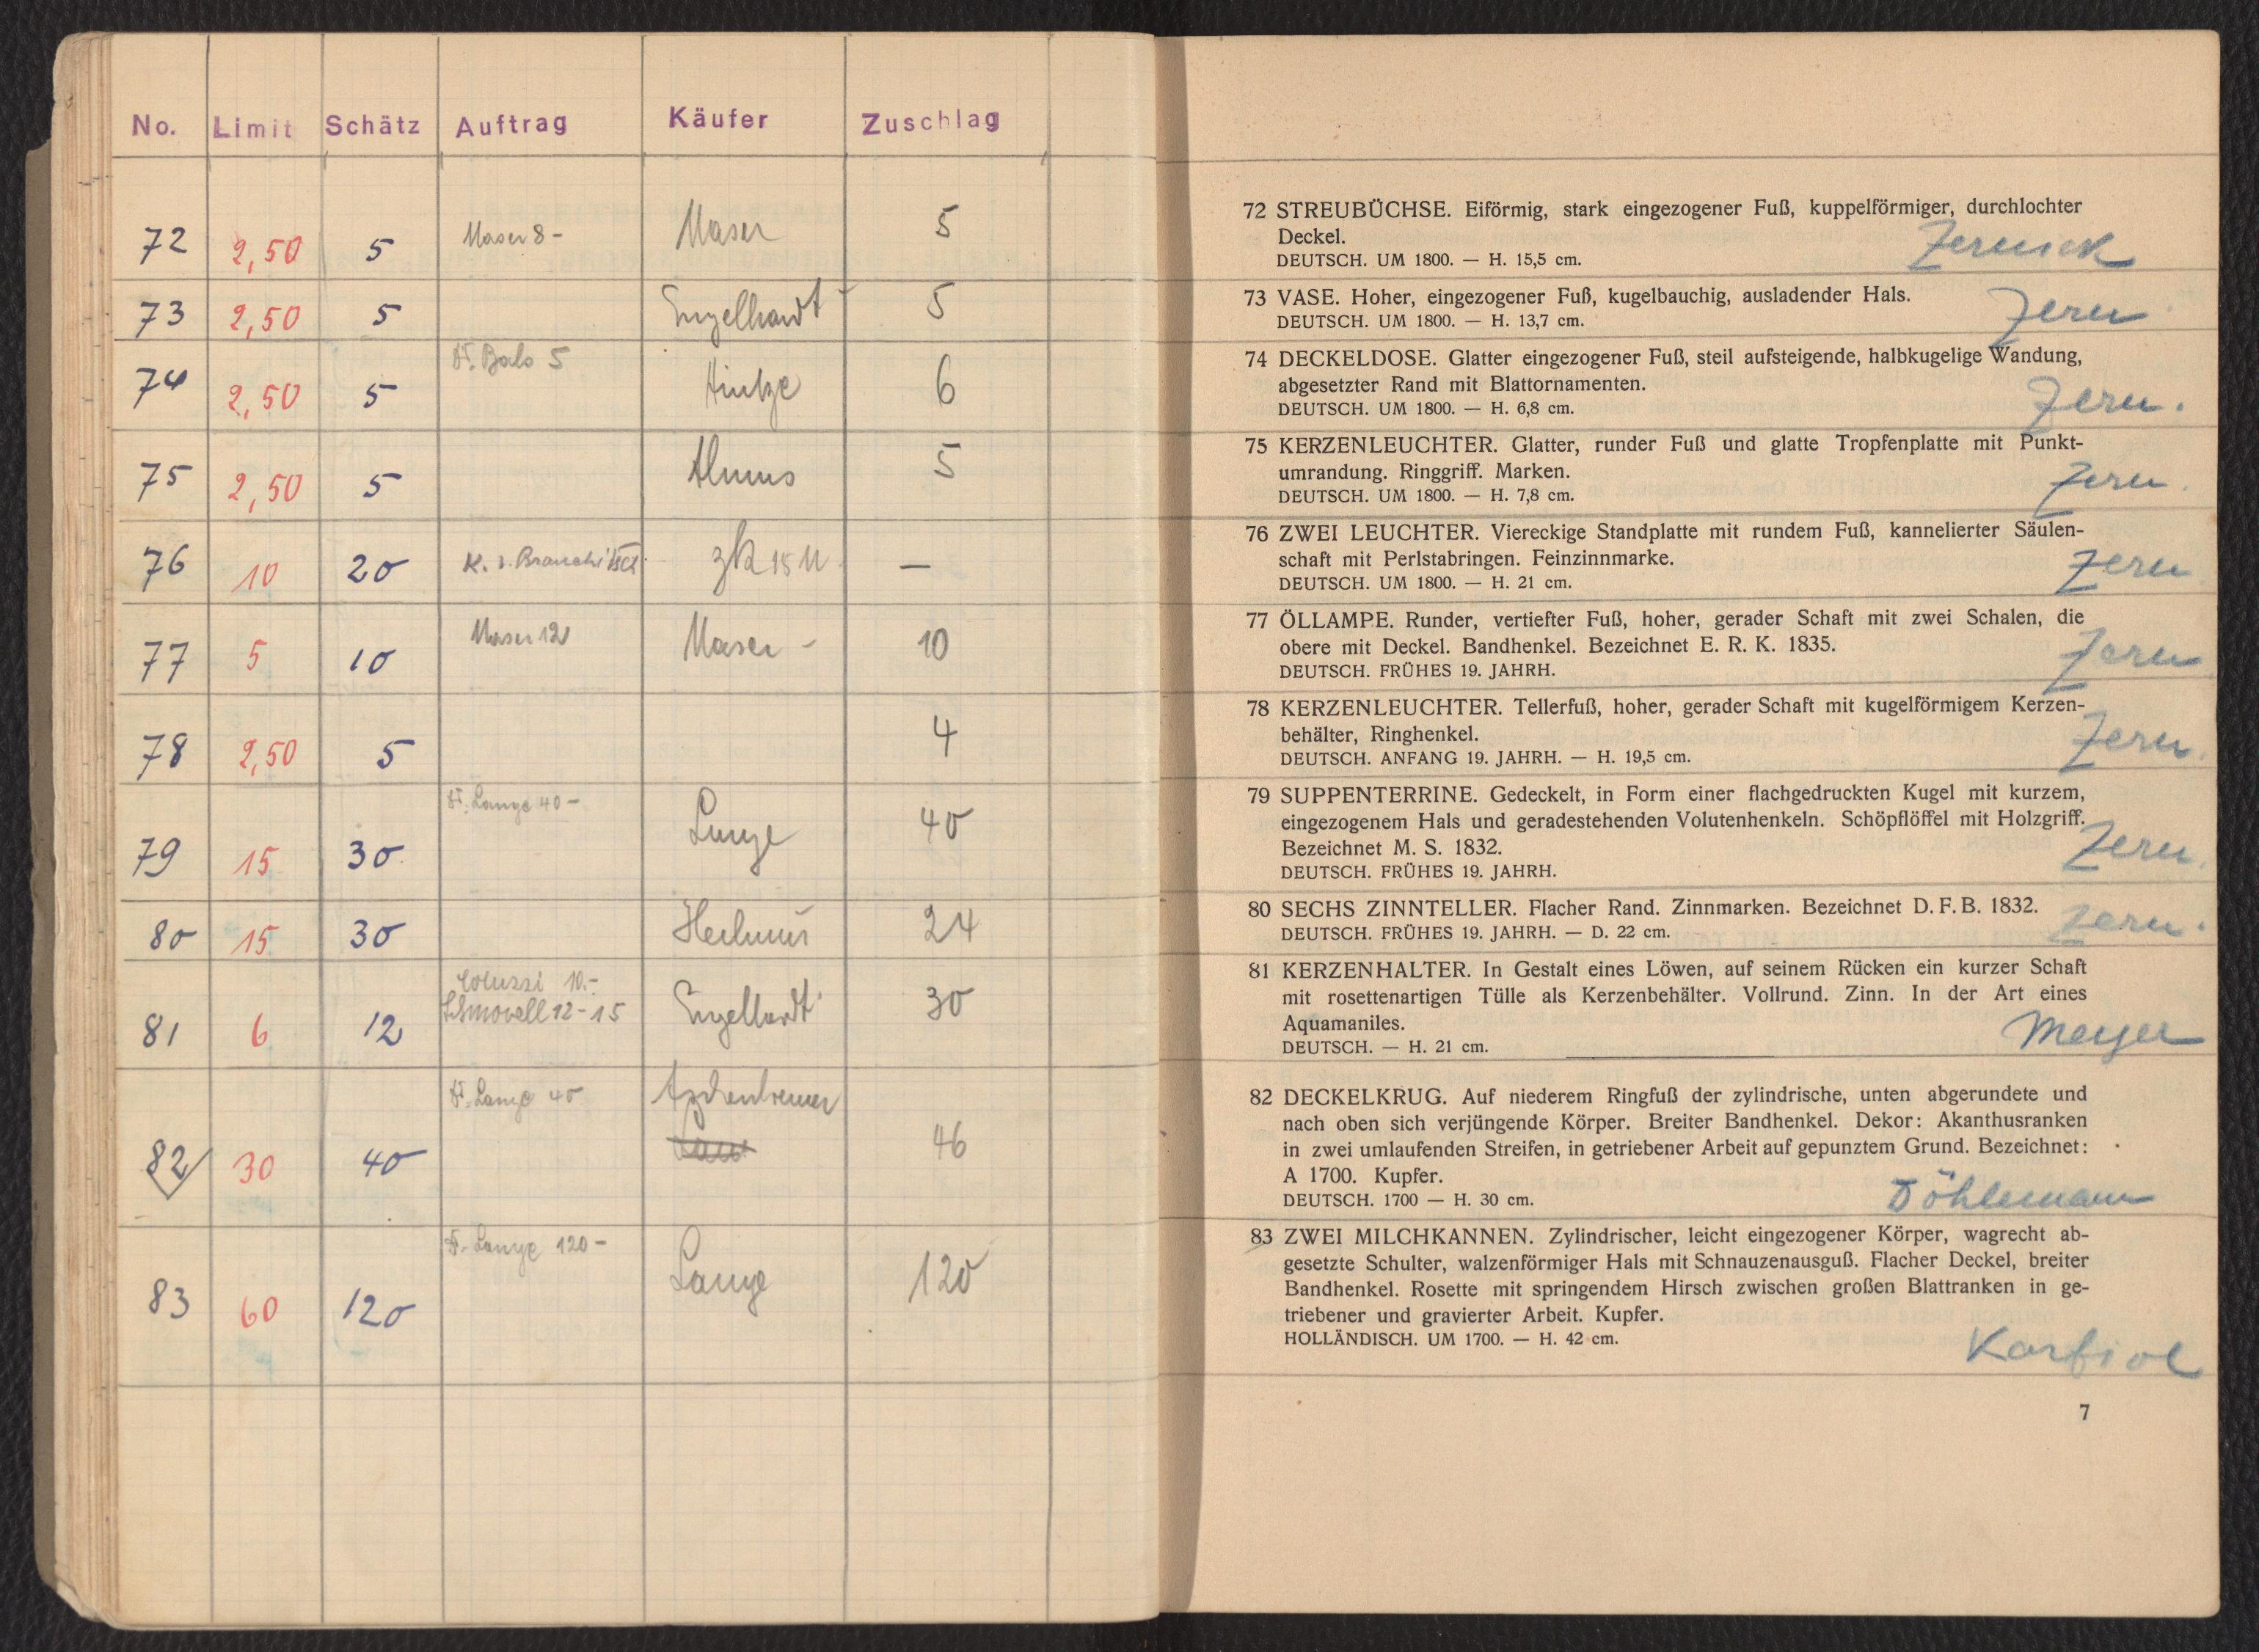 No. Limit Schätz Auftrag Käufer Zuschlag
72 2,50 5 Maser 8 - Maser 5
73 2,50 5 Engelhardt 5
74 2,50 5 Balo 5 Hintze 6
75 2,50 5 5
76 10 20 K. v. —
77 5 10 Maser 12 Maser - 10
78 2,50 5 4
79 15 30 Lange 40 - Lange 40
80 15 30 24
81 6 12 Colussi 10.-
12-15 Engelhardt 30
82 30 40 Lange 40 46
83 60 120 Lange 120 - Lange 120
72 STREUBÜCHSE. Eiförmig, stark eingezogener Fuß, kuppelförmiger, durchlochter
Deckel.
DEUTSCH. UM 1800. — H. 15,5 cm.
Zernick
73 VASE. Hoher, eingezogener Fuß, kugelbauchig, ausladender Hals.
DEUTSCH. UM 1800. — H. 13,7 cm.
Zern
74 DECKELDOSE. Glatter eingezogener Fuß, steil aufsteigende, halbkugelige Wandung,
abgesetzter Rand mit Blattornamenten.
DEUTSCH. UM 1800. — H. 6,8 cm.
Zern.
75 KERZENLEUCHTER. Glatter, runder Fuß und glatte Tropfenplatte mit Punkt-
umrandung. Ringgriff. Marken.
DEUTSCH. UM 1800. — H. 7,8 cm.
Zern.
76 ZWEI LEUCHTER. Viereckige Standplatte mit rundem Fuß, kannelierter Säulen-
schaft mit Perlstabringen. Feinzinnmarke.
DEUTSCH. UM 1800. — H. 21 cm.
Zern
77 ÖLLAMPE. Runder, vertiefter Fuß, hoher, gerader Schaft mit zwei Schalen, die
obere mit Deckel. Bandhenkel. Bezeichnet E. R. K. 1835.
DEUTSCH. FRÜHES 19. JAHRH.
Zern
78 KERZENLEUCHTER. Tellerfuß, hoher, gerader Schaft mit kugelförmigem Kerzen-
behälter, Ringhenkel.
DEUTSCH. ANFANG 19. JAHRH. — H. 19,5 cm.
Zern.
79 SUPPENTERRINE. Gedeckelt, in Form einer flachgedruckten Kugel mit kurzem,
eingezogenem Hals und geradestehenden Volutenhenkeln. Schöpflöffel mit Holzgriff.
Bezeichnet M. S. 1832.
DEUTSCH. FRÜHES 19. JAHRH.
Zern.
80 SECHS ZINNTELLER. Flacher Rand. Zinnmarken. Bezeichnet D. F. B. 1832.
DEUTSCH. FRÜHES 19. JAHRH. — D. 22 cm.
Zern.
81 KERZENHALTER. In Gestalt eines Löwen, auf seinem Rücken ein kurzer Schaft
mit rosettenartigen Tülle als Kerzenbehälter. Vollrund. Zinn. In der Art eines
Aquamaniles.
DEUTSCH. — H. 21 cm.
Meyer
82 DECKELKRUG. Auf niederem Ringfuß der zylindrische, unten abgerundete und
nach oben sich verjüngende Körper. Breiter Bandhenkel. Dekor: Akanthusranken
in zwei umlaufenden Streifen, in getriebener Arbeit auf gepunztem Grund. Bezeichnet:
A 1700. Kupfer.
DEUTSCH. 1700 — H. 30 cm.
Döhlemann
83 ZWEI MILCHKANNEN. Zylindrischer, leicht eingezogener Körper, wagrecht ab-
gesetzte Schulter, walzenförmiger Hals mit Schnauzenausguß. Flacher Deckel, breiter
Bandhenkel. Rosette mit springendem Hirsch zwischen großen Blattranken in ge-
triebener und gravierter Arbeit. Kupfer.
HOLLÄNDISCH. UM 1700. — H. 42 cm.
Karfiol
7